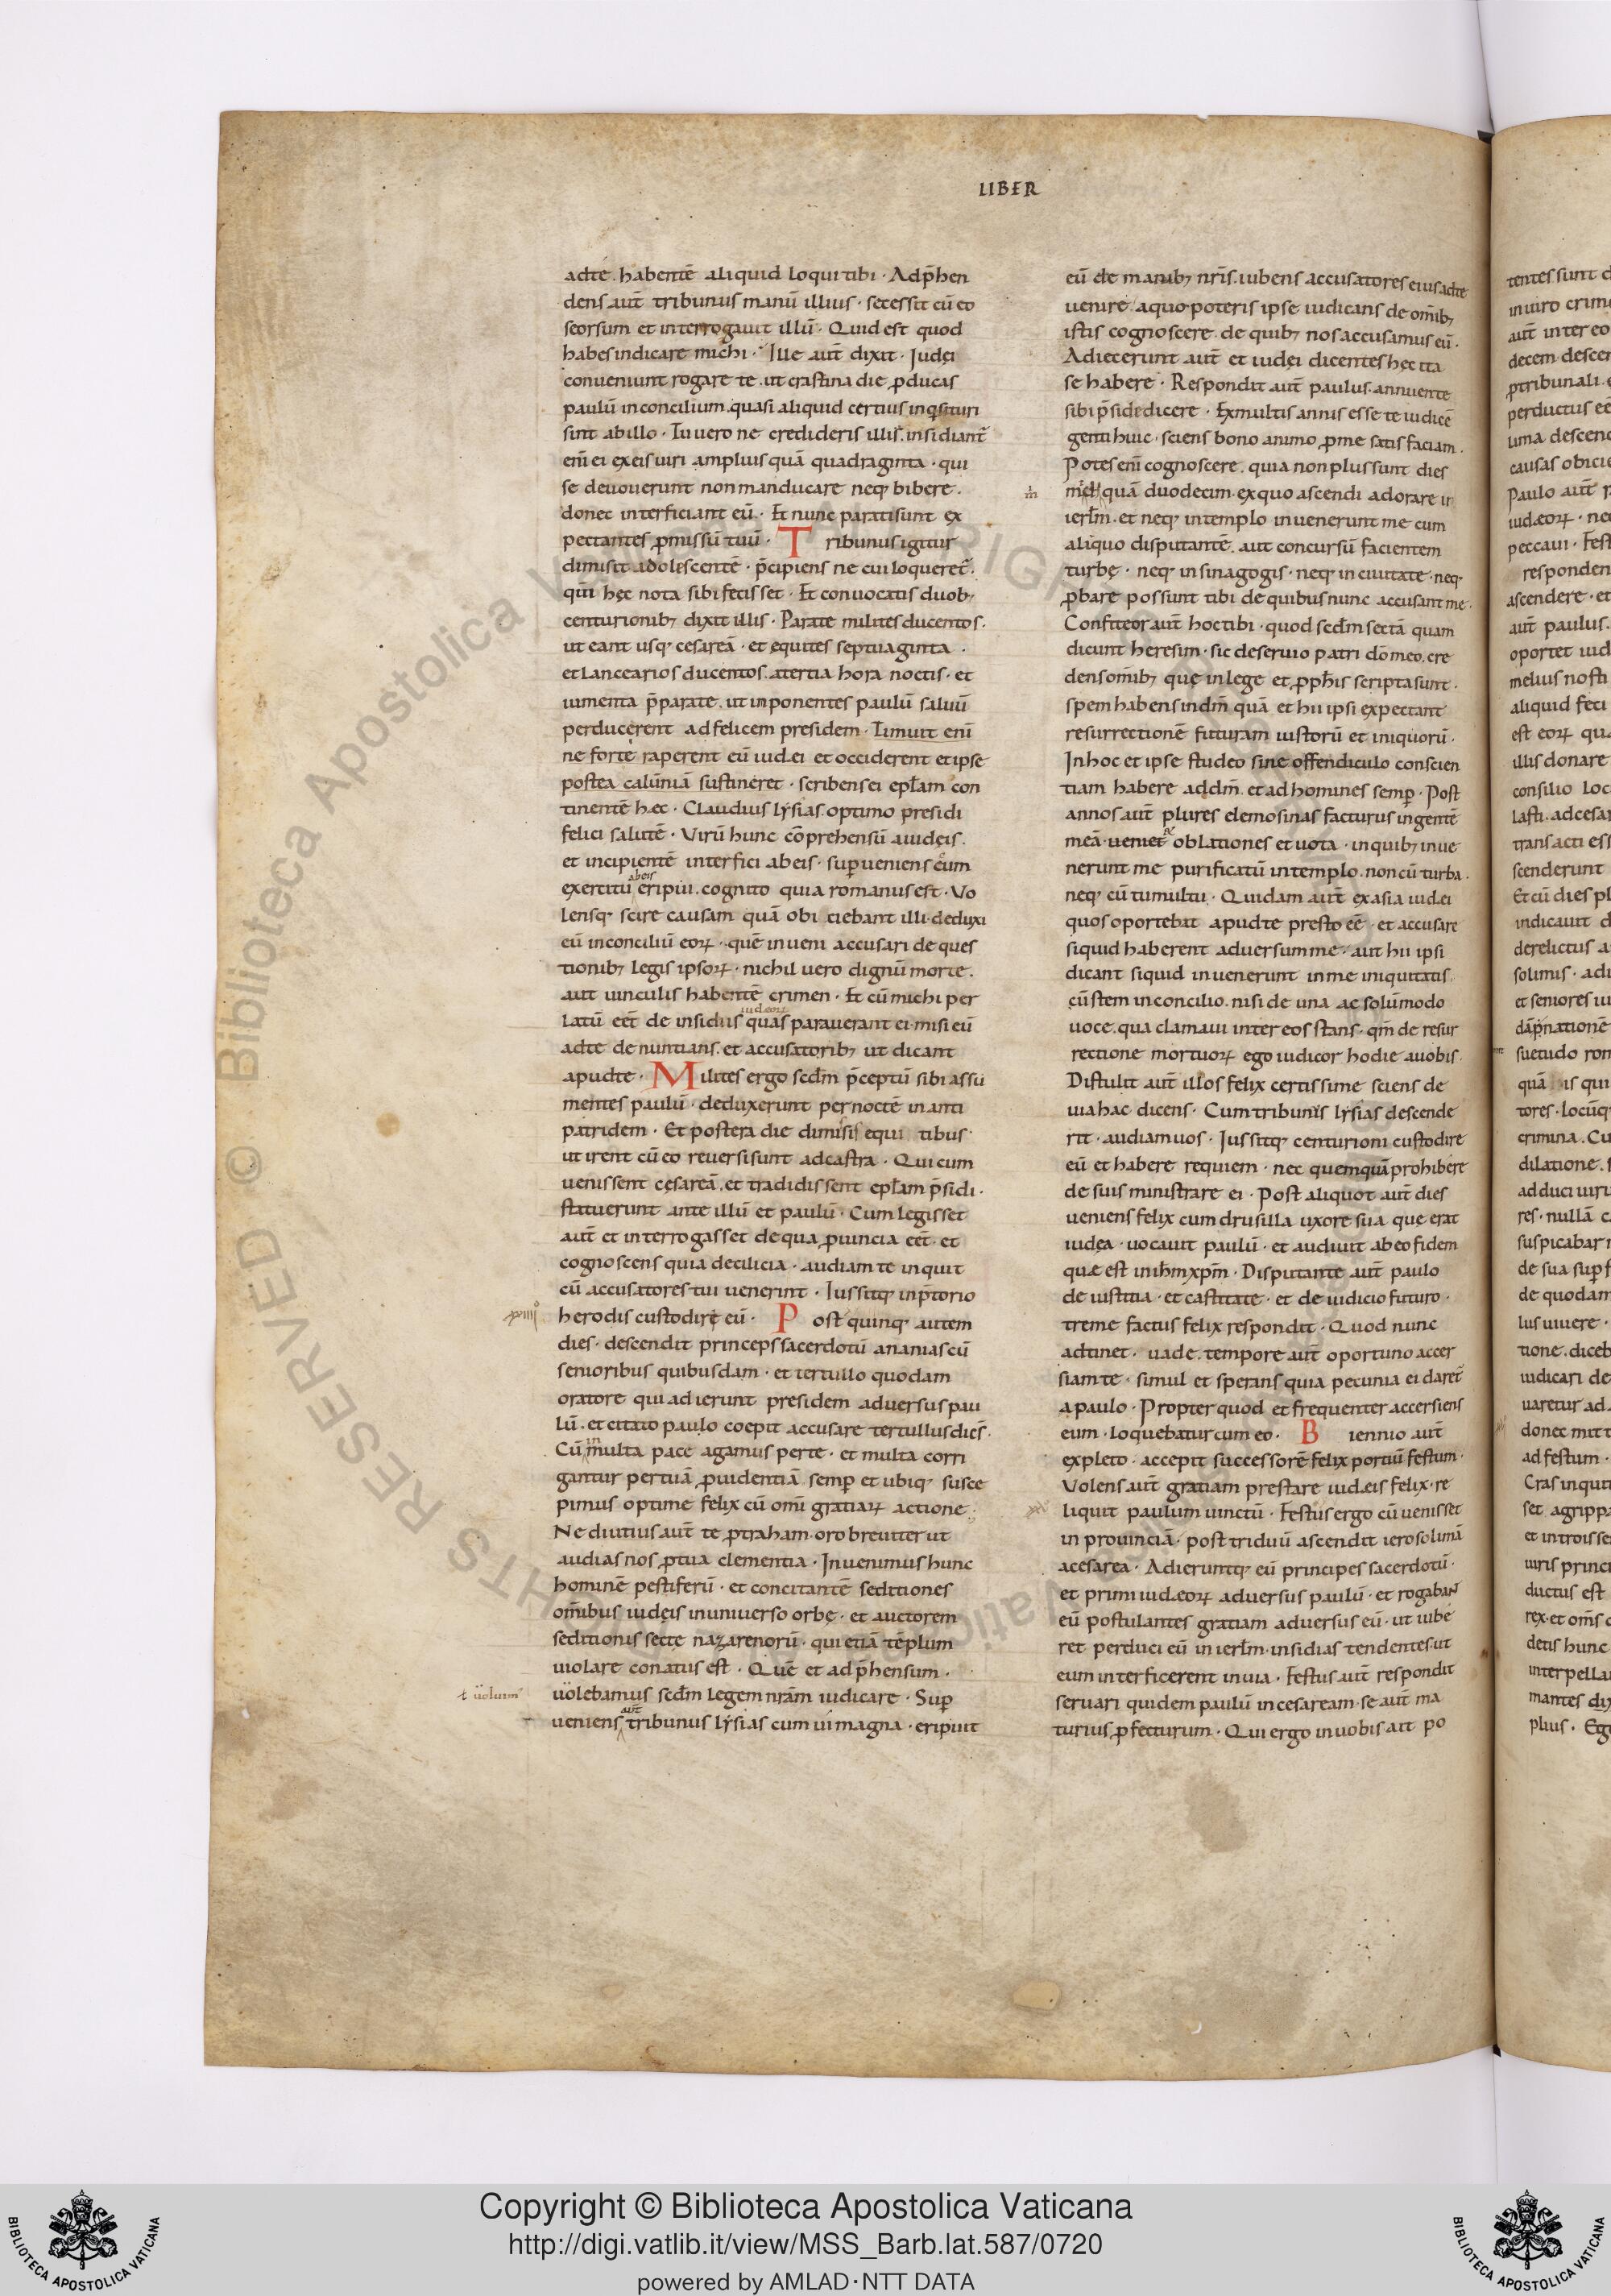 LIBER
adte. habentē aliquid loqui tibi · Adp̄hen
dens aut̄ tribunus manū illius · secessit cū eo
seorsum et interrogauit illū · Quid est quod
habes indicare michi · Ille aut̄ dixit · Iudęi
conueniunt rogare te. ut crastina die ꝓducas
paulū in concilium. quasi aliquid certius inqͥsituri
sint ab illo · Tu uero ne credideris illis. insidiant᷑
eni᷑ ei ex eis uiri amplius quā quadraginta · qui
se deuouerunt non manducare neqꝫ bibere.
donec interficiant eū · Et nunc parati sunt ex
pectantes ꝓmissū tuū · Tribunus igitur
dimisit adolescentē · p̄cipiens ne cui loqueret᷑.
qm̄ hęc nota sibi fecisset · Et conuocatis duobꝫ
centurionibꝫ dixit illis · Parate milites ducentos.
ut eant usqꝫ cesareā · et equites septuaginta ·
et lancearios ducentos. a tertia hora noctis · et
iumenta p̄parate. ut inponentes paulū saluū
perducerent ad felicem presidem · Timuit eni᷑
ne forte raperent eū iudei et occiderent et ipse
postea calūniā sustineret · scribens ei epl̄am con
tinentē hęc · Claudius lysias optimo presidi
felici salutē · Virū hunc cōprehensū a iudęis.
et incipientē interfici ab eis · suꝑueniens cum
exercitu ab eis eripui. cognito quia romanus est · Vo
lensqꝫ scire causam quā obiciebant illi · deduxi
eū in conciliū eoꝝ · quē inueni accusari de ques
tionibꝫ legis ipsoꝝ · nichil uero dignū morte.
aut uinculis habentē crimen · Et cū michi per
latū eet̄ de insidiis iudeoꝝ quas parauerant ei · misi eū
adte denuntians. et accusatoribꝫ ut dicant
apudte · Milites ergo scd̄m p̄ceptū sibi assu
mentes paulū · deduxerunt per noctē in anti
patridem · Et postera die dimissis equitibus
ut irent cū eo reuersi sunt ad castra · Qui cum
uenissent cęsareā. et tradidissent epl̄am p̄sidi.
statuerunt ante illū et paulū · Cum legisset
aut̄ et interrogasset de qua ꝓuincia eet̄ · et
cognoscens quia de cilicia · audiam te inquit
cū accusatores tui uenerint · Iussitqꝫ in p̄torio
xxiiii
herodis custodire eū · Post quinqꝫ autem
dies · descendit princeps sacerdotū ananias cū
senioribus quibusdam · et tertullo quodam
oratore qui adierunt presidem aduersus pau
lū. et citato paulo coepit accusare tertullus dicēs.
Cū in multa pace agamus per te · et multa corri
gantur per tuā ꝓuidentiā. semꝑ et ubiqꝫ susce
pimus optime felix cū omi᷑ gratiaꝝ actione.
Ne diutius aut̄ te ꝓtraham. oro breuiter ut
audias nos ꝓ tua clementia · Inuenimus hunc
hominē pestiferū · et concitantē seditiones
om̄ibus iudęis in uniuerso orbe · et auctorem
seditionis sectę nazarenorū · qui etiā tēplum
uiolare conatus est · Quē et adp̄hensum ·
ł uoluim᷒
uolebamus scd̄m legem nr̄am iudicare · Suꝑ
ueniens aut̄ tribunus lysias cum ui magna · eripuit
eū de manibꝫ nr̄is. iubens accusatores eius adte
uenire · a quo poteris ipse iudicans de om̄ibꝫ
istis cognoscere. de quibꝫ nos accusamus eū.
Adiecerunt aut̄ et iudęi dicentes hęc ita
se habere · Respondit aut̄ paulus. annuente
sibi p̄side dicere · Ex multis annis esse te iudicē
genti huic · sciens bono animo ꝓ me satis faciam.
Potes eni᷑ cognoscere. quia non plus sunt dies
m̄ quā duodecim. ex quo ascendi adorare in
ierl̄m · et neqꝫ in templo inuenerunt me cum
aliquo disputantē. aut concursū facientem
turbę · neqꝫ in sinagogis · neqꝫ in ciuitate · neqꝫ
ꝓbare possunt tibi de quibus nunc accusant me.
Confiteor aut̄ hoc tibi · quod scd̄m sectā quam
dicunt heresim · sic deseruio patri dō meo. cre
dens om̄ibꝫ quę in lege et ꝓph̄is scripta sunt.
spem habens in dm̄ quā et hii ipsi expectant
resurrectionē futuram iustorū et iniquorū.
In hoc et ipse studeo sine offendiculo conscien
tiam habere ad dm̄. et ad homines semꝑ · Post
annos aut̄ plures elemosinas facturus in gentē
meā · ueni et oblationes et uota · in quibꝫ inue
nerunt me purificatū in templo. non cū turba.
neqꝫ cū tumultu · Quidam aut̄ ex asia iudei
quos oportebat apudte presto eē · et accusare
si quid haberent aduersum me · aut hii ipsi
dicant si quid inuenerunt in me iniquitatis
cū stem in concilio. nisi de una ac solūmodo
uoce. qua clamaui inter eos stans · qm̄ de resur
rectione mortuoꝝ ego iudicor hodie a uobis.
Distulit aut̄ illos felix certissime sciens de
uia hac dicens · Cum tribunus lysias descende
rit · audiam uos · Iussitqꝫ centurioni custodire
eū et habere requiem · nec quemquā prohibere
de suis ministrare ei · Post aliquot aut̄ dies
ueniens felix cum drusilla uxore sua que erat
iudęa · uocauit paulū · et audiuit ab eo fidem
quę est in ih̄m xpm̄ · Disputante aut̄ paulo
de iustitia · et castitate · et de iudicio futuro ·
treme factus felix respondit · Quod nunc
adtinet · uade. tempore aut̄ oportuno accer
siam te · simul et sperans quia pecunia ei daret᷑
a paulo · Propter quod et frequenter accersiens
eum · loquebatur cum eo · Biennio aut̄
expleto · accepit successorē felix portiū festum ·
Volens aut̄ gratiam prestare iudeis felix · re
liquit paulum uinctū · Festus ergo cū uenisset
in prouinciā · post triduū ascendit ierosolimā
a cesarea · Adieruntqꝫ eū principes sacerdotū ·
et primi iudeoꝝ aduersus paulū · et rogaban̄
eū postulantes gratiam aduersus eū · ut iube
ret perduci eū in ierl̄m · insidias tendentes ut
eum interficerent in uia · Festus aut̄ respondit
seruari quidem paulū in cesaream · se aut̄ ma
turius ꝓfecturum · Qui ergo in uobis ait po
tentes sunt
in uiro crim
aut̄ inter eo
decem descen
ꝓ tribunali
perductus eē
lima descen
causas obicie
Paulo aut̄
iudeoꝝ · ne
peccaui · Fest
responden
ascendere · et
aut̄ paulus.
oportet iud
melius nosti
aliquid feci
est eoꝝ qua
illis donare
consilio loc
lasti. ad cesar
transacti ess
scenderunt
Et cū dies pl
indicauit d
derelictus a
solimis · adi
et seniores iu
dāpnationē
suetudo rom
quā is qui
tores · locūq
crimina. Cu
dilatione.
adduci uiru
res · nullā c
suspicabar
de sua suꝑf
de quodam
lus uiuere ·
tione. diceb
iudicari de
uaretur ad
donec mitt
ad festum ·
Cras inquit
set agrippa
et introisse
uiris princi
ductus est
rex · et om̄s
detis hunc
interpella
mantes di
plius · Eg
Copyright © Biblioteca Apostolica Vaticana
http://digi.vatlib.it/view/MSS_Barb.lat.587/0720
powered by AMLAD·NTT DATA
BIBLIOTECA APOSTOLICA VATICANA
BIBLIOTECA APOSTOLICA VATICANA